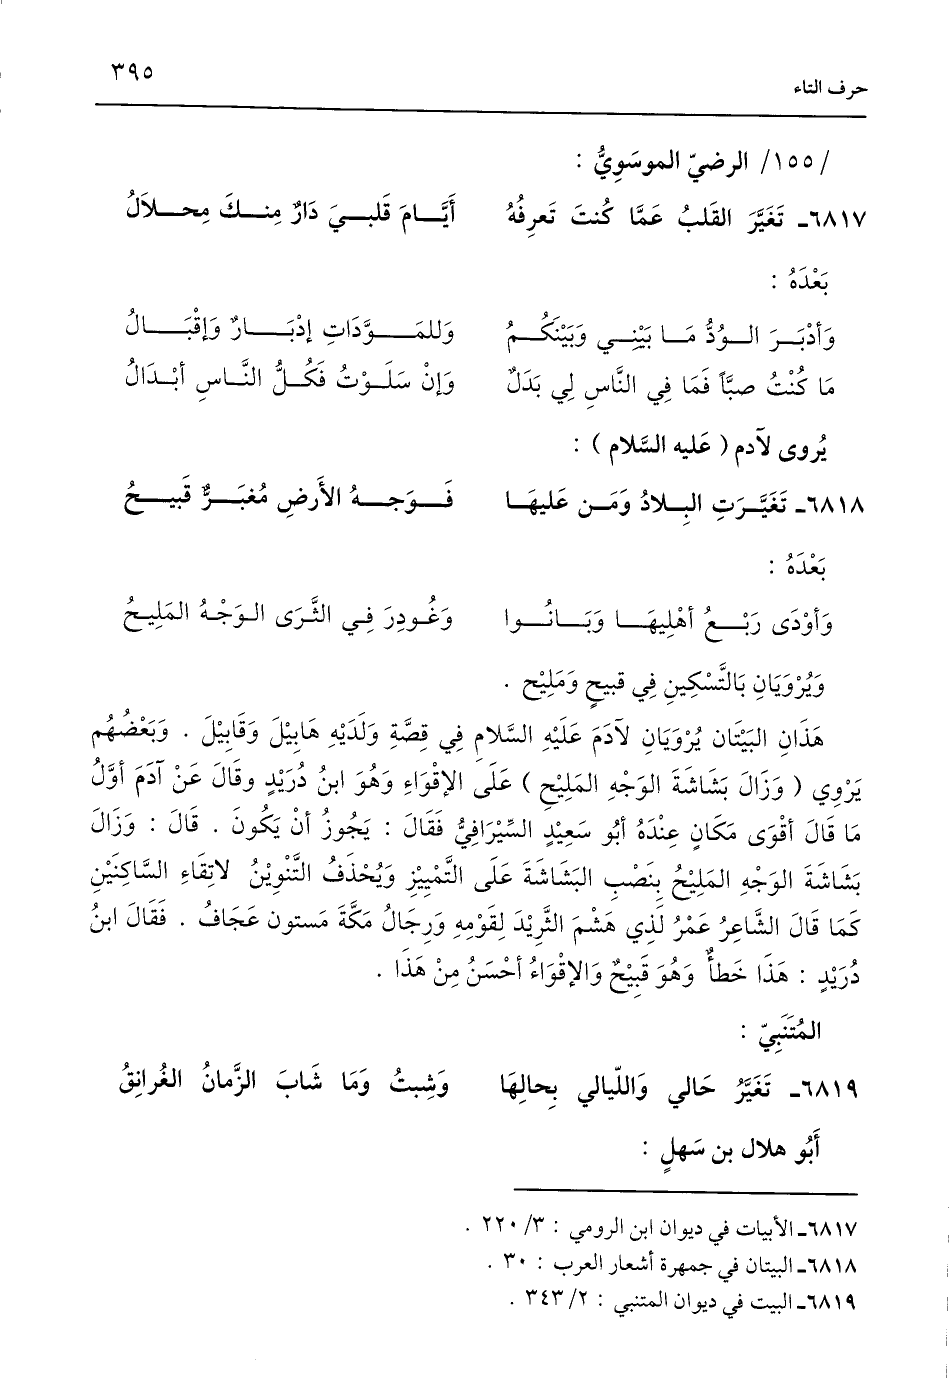 حرف التاء ٣٩٥
/١٥٥/ الرضيّ الموسَوِيُّ :
٦٨١٧ـ تَغَيَّرَ القَلبُ عَمَّا كُنتَ تَعرِفُهُ أَيَّامَ قَلبيَ دَارٌ مِنكَ مِحلاَلُ
بَعْدَهُ :
وَأدْبَرَ الوُدُّ مَا بَيْنِي وَبَيْنَكُمُ وَللمَوَّدَاتِ إدْبَارٌ وَإقْبَالُ
مَا كُنْتُ صبَّاً فَمَا فِي النَّاسِ لِي بَدَلٌ وَإنْ سَلَوْتُ فَكُلُّ النَّاسِ أبْدَالُ
يُروى لآدم ( عَليه السَّلام ) :
٦٨١٨ـ تَغَيَّرَتِ البِلادُ وَمَن عَليهَا فَوَجهُ الأَرضِ مُغبَرٌّ قَبيحُ
بَعْدَهُ :
وَأوْدَى رَبْعُ أهْلِيهَا وَبَانُوا وَغُودِرَ فِي الثَّرَى الوَجْهُ المَلِيحُ
وَيُرْوَيَانِ بَالتَّسْكِينِ فِي قبيحٍ وَمَلِيْح .
هَذَانِ البَيْتَان يُرْوَيَانِ لآدَمَ عَلَيْهِ السَّلامِ فِي قِصَّةِ وَلَدَيْهِ هَابِيْلَ وَقَابِيْلَ . وَبَعْضُهُم
يَرْوِي ( وَزَالَ بَشَاشَةَ الوَجْهِ المَلِيْحِ ) عَلَى الإقْوَاءِ وَهُوَ ابنُ دُرَيْدٍ وقَالَ عَنْ آدَمَ أوَّلُ
مَا قَالَ أقْوَى مَكَانٍ عِنْدَهُ أبُو سَعِيْدٍ السِّيْرَافِيُّ فَقَالَ : يَجُوزُ أنْ يَكُونَ . قَالَ : وَزَالَ
بَشَاشَةَ الوَجْهِ المَلِيْحُ بِنَصْبِ البَشَاشَةَ عَلَى التَّمْيِيْزِ وَيُحْذَفُ التَّنْوِيْنُ لاتِقَاءِ السَّاكِنَيْنِ
كَمَا قَالَ الشَّاعِرُ عَمْرُ لَذِي هَشْمَ الثَّرِيْدَ لِقَوْمِهِ وَرِجَالُ مَكَّةَ مَستون عَجَافُ . فَقَالَ ابنُ
دُرَيْدٍ : هَذَا خَطأٌ وَهُوَ قَبِيْحٌ وَالإقْوَاءُ أحْسَنُ مِنْ هَذَا .
المُتَنَبِيّ :
٦٨١٩ـ تَغَيَّرُ حَالي وَاللّيالي بِحالِهَا وَشِبتُ وَمَا شَابَ الزَّمانُ الغُرانِقُ
أَبُو هلال بن سَهلٍ :
٦٨١٧ـ الأبيات في ديوان ابن الرومي : ٣/ ٢٢٠ .
٦٨١٨ـ البيتان في جمهرة أشعار العرب : ٣٠ .
٦٨١٩ـ البيت في ديوان المتنبي : ٢/ ٣٤٣ .